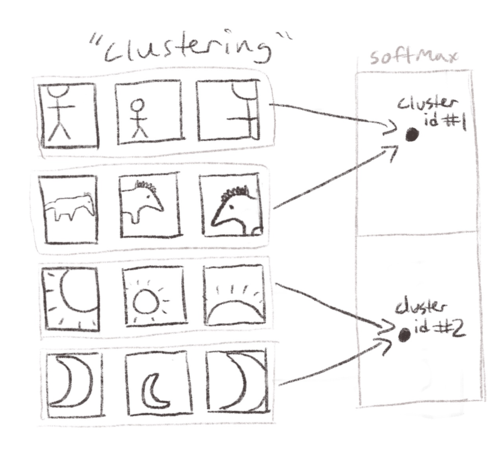 "clustering"
softmax
cluster
id #1
cluster
id #2